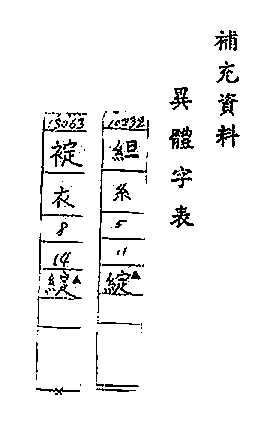 補充資料
異體字表
10232
組
糸
5
11
綻▲
13063
袉
衣
8
14
綻▲